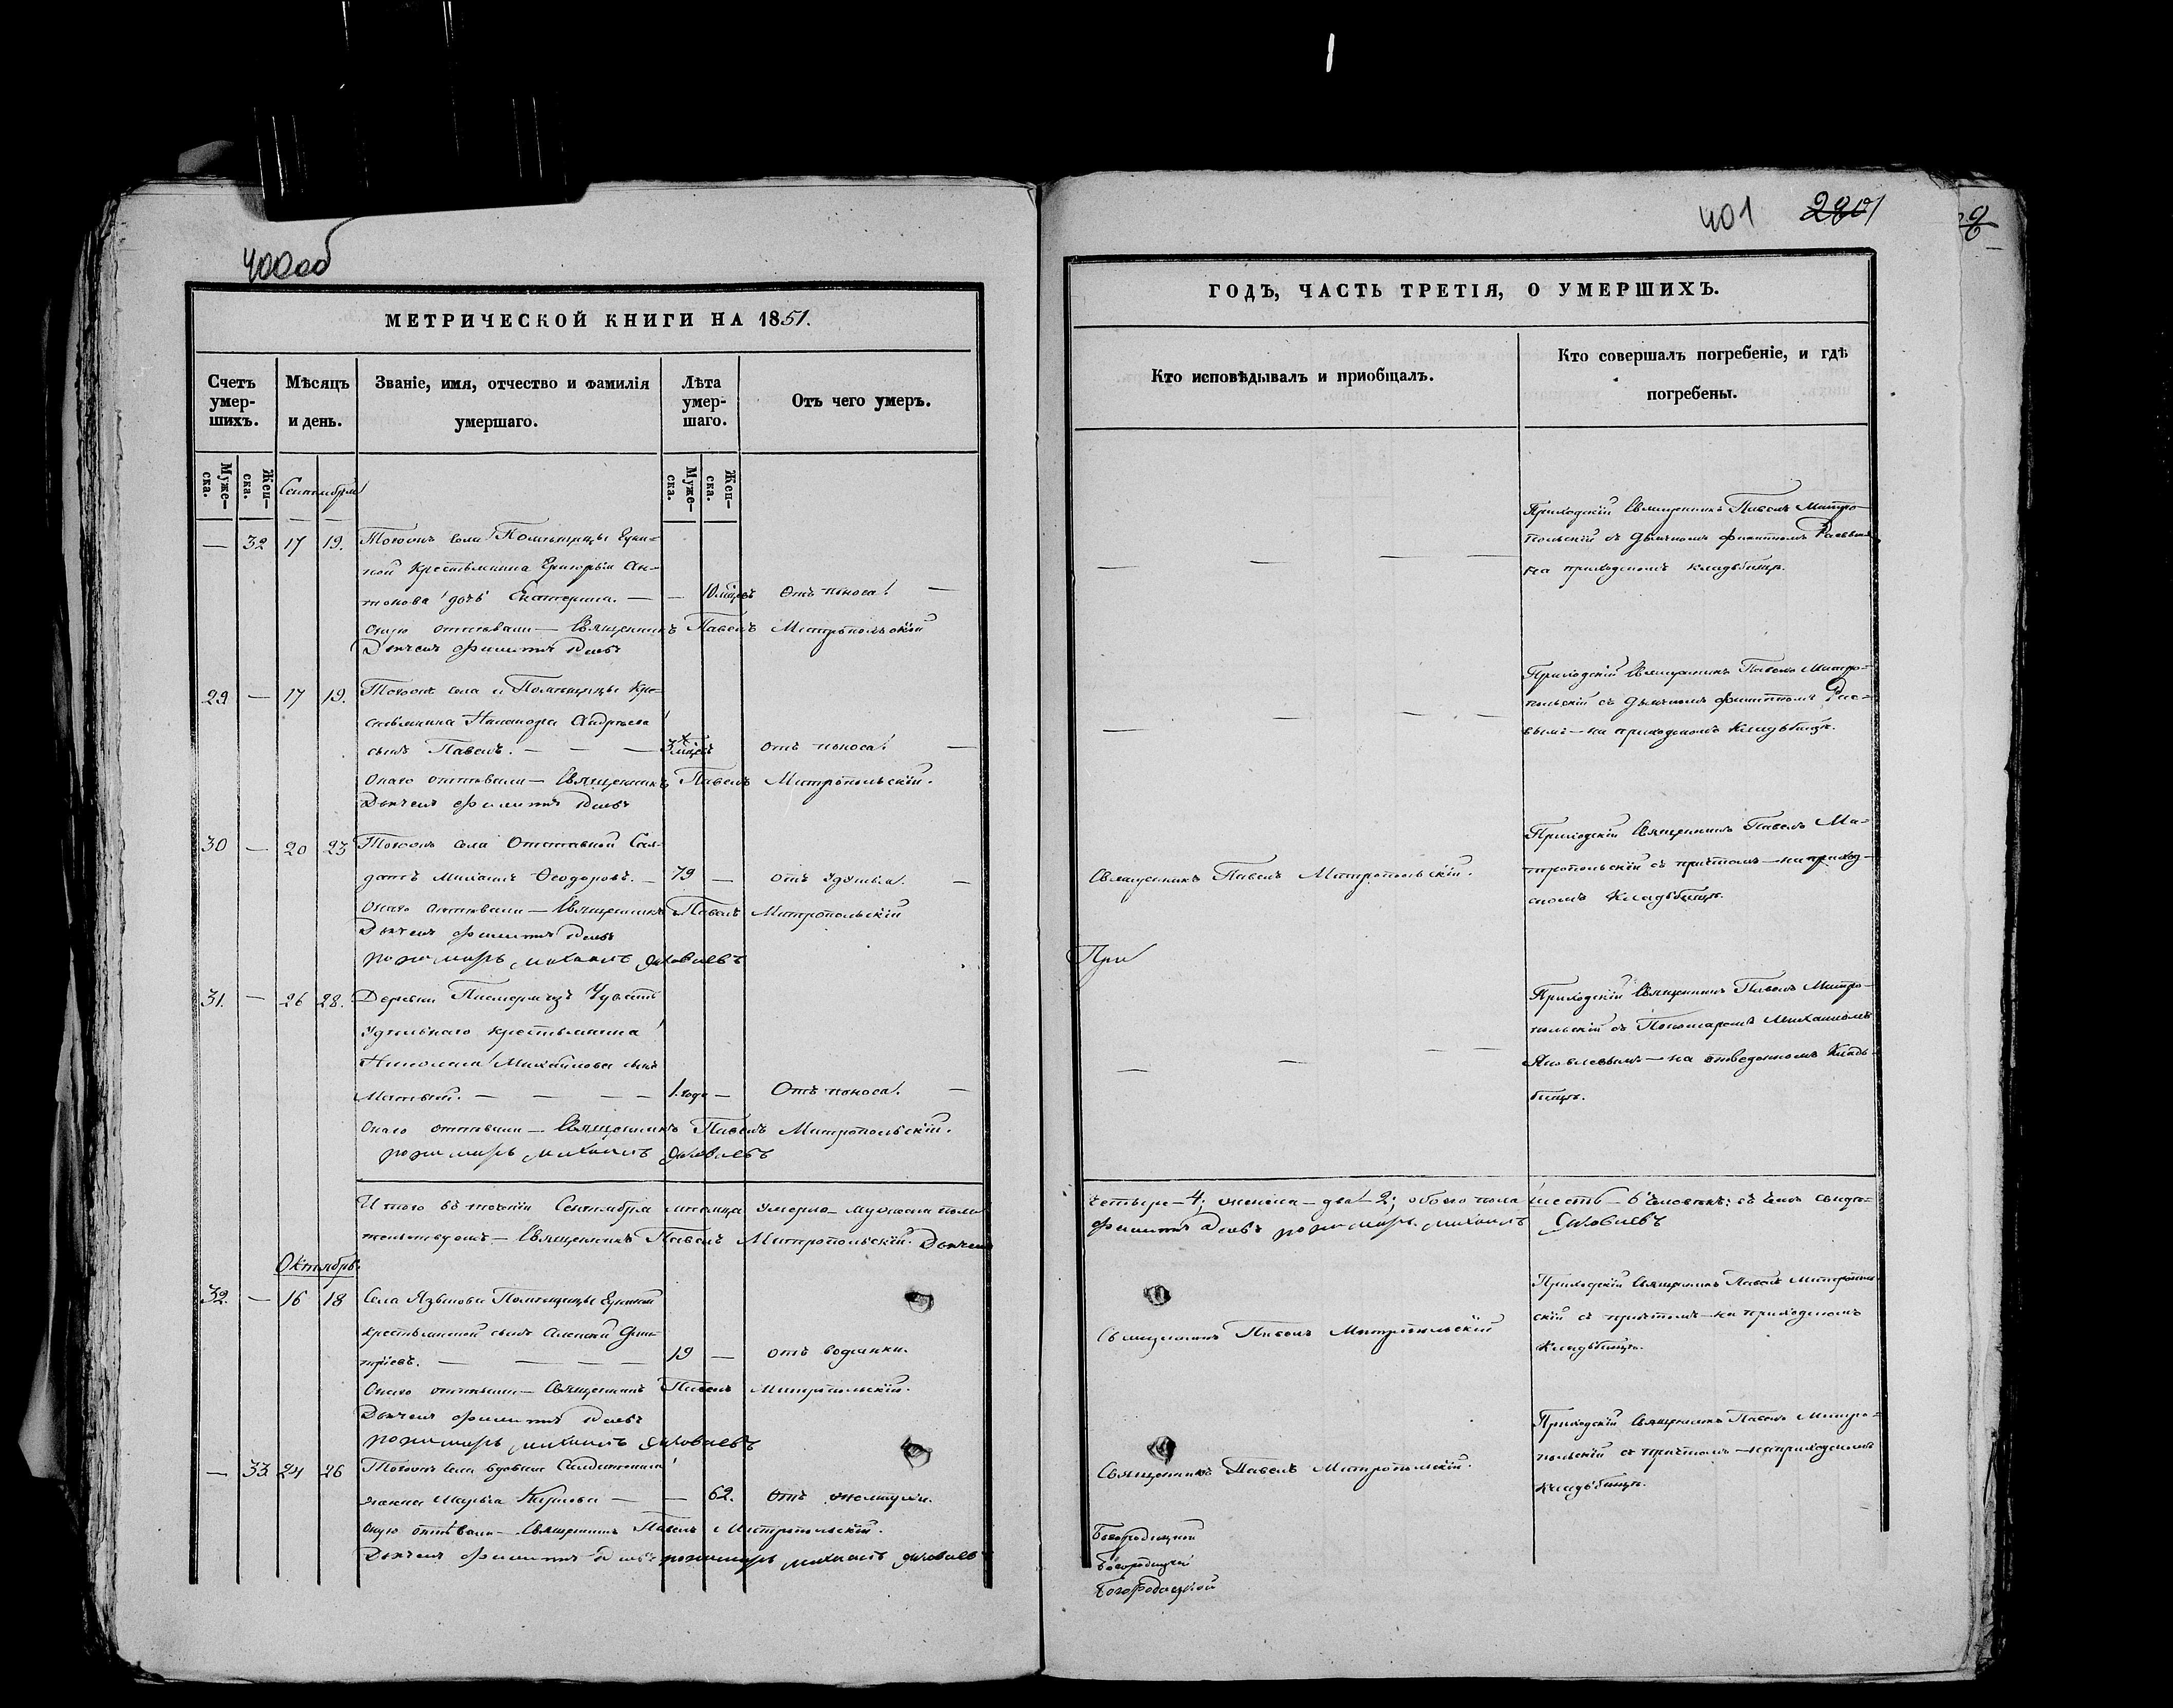 400об
МЕТРИЧЕСКОЙ КНИГИ НА 1851.
Счетъ умер-шихъ.
Мѣсяцъ и день.
Званіе, имя, отчество и фамилія умершаго.
Лѣта умер-шаго.
Отъ чего умеръ.
Муже-ска.
Жен-ска.
Сентябрь
Муже-ска.
Жен-ска.
— 32 17 19. Тогожъ села Помѣщицы
крестьянина Григорья Ан-
тонова дочь Екатерина. — — 10 мѣсѣ Отъ поноса. —
Оную отпѣвали — Священникъ Павелъ Митропольскій
Дьячекъ Филиппъ
29 — 17 19. Тогожъ села и Помѣщицы Кре-
стьянина Никанора Андреева
сынъ Павелъ. — — — 3 мѣсѣ отъ поноса. —
Онаго отпѣвали — Священникъ Павелъ Митропольскій.
Дьячекъ Филиппъ
30 — 20 23 Тогожъ села Отставной Сол-
датъ Михаилъ Ѳеодоровъ. — 79 — отъ удушья. —
Онаго отпѣвали — Священникъ Павелъ Митропольскій
Дьячекъ Филиппъ
пономарь Михаилъ Яковлевъ
31. — 26 28. Деревни
Удѣльнаго крестьянина
Николая Михайлова сынъ
Матвѣй. — — — — 1. года — Отъ поноса. —
Онаго отпѣвали — Священникъ Павелъ Митропольскій.
пономарь Михаилъ Яковлевъ
Итого въ теченіи Сентября мѣсяца умерло — мужеска пола
тельствуемъ — Священникъ Павелъ Митропольскій. Дьячекъ
Октябрь.
32. — 16 18 Села Языкова Помѣщицы
крестьянской сынъ Алексѣй Дми-
тріевъ. — — — — 19 — отъ водянки.
Онаго отпѣвали — Священникъ Павелъ Митропольскій.
Дьячекъ Филиппъ
пономарь Михаилъ Яковлевъ
— 33 24 26 Тогожъ села вдовая Солдатская
жонка Марья Карпова — — 62. Отъ желтухи.
Оную отпѣвали — Священникъ Павелъ Митропольскій.
Дьячекъ Филиппъ пономарь Михаилъ Яковлевъ
401 2801
ГОДЪ, ЧАСТЬ ТРЕТІЯ, О УМЕРШИХЪ.
Кто исповѣдывалъ и пріобщалъ.
Кто совершалъ погребеніе, и гдѣ погребены.
Приходскій Священникъ Павелъ Митро-
польскій съ Дьячкомъ Филиппомъ
на приходскомъ кладбищѣ.
Приходскій Священникъ Павелъ Митро-
польскій съ Дьячкомъ Филиппомъ
вымъ — на приходскомъ Кладбищѣ.
Священникъ Павелъ Митропольскій.
Приходскій Священникъ Павелъ Ми-
тропольскій съ причтомъ — на приход-
скомъ Кладбищѣ.
При
Приходскій Священникъ Павелъ Митро-
польскій съ Пономаремъ Михаиломъ
Яковлевымъ — на отведенномъ Клад-
бищѣ.
четыре — 4; женска — два — 2; обоего пола шесть — 6 человѣкъ: въ чемъ свидѣ-
Филиппъ пономарь Михаилъ Яковлевъ
Священникъ Павелъ Митропольскій
Приходскій Священникъ Павелъ Митрополь-
скій съ причтомъ — на приходскомъ
Кладбищѣ.
Священникъ Павелъ Митропольскій.
Приходскій Священникъ Павелъ Митро-
польскій съ причтомъ — на приходскомъ
кладбищѣ.
Богородицкой
Богородицкой
Богородицкой